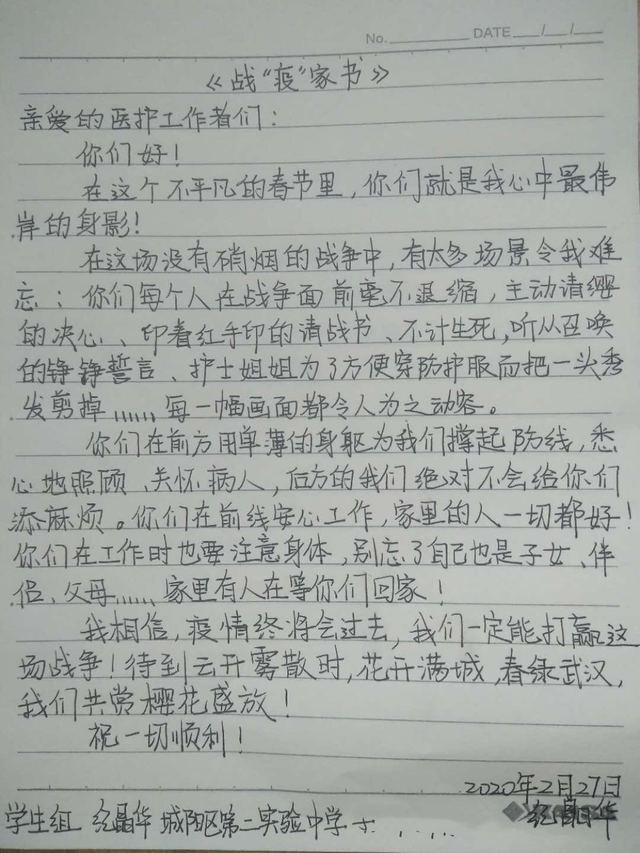 No. DATE / /
《战“疫”家书》
亲爱的医护工作者们：
你们好！
在这个不平凡的春节里，你们就是我心中最伟
岸的身影！
在这场没有硝烟的战争中，有太多场景令我难
忘：你们每个人在战争面前毫不退缩，主动请缨
的决心、印着红手印的请战书、不计生死，听从召唤
的铮铮誓言、护士姐姐为了方便穿防护服而把一头秀
发剪掉……每一幅画面都令人为之动容。
你们在前方用单薄的身躯为我们撑起防线，悉
心地照顾、关怀病人，后方的我们绝对不会给你们
添麻烦。你们在前线安心工作，家里的人一切都好！
你们在工作时也要注意身体，别忘了自己也是子女、伴
侣、父母……家里有人在等你们回家！
我相信，疫情终将会过去，我们一定能打赢这
场战争！待到云开雾散时，花开满城，春绿武汉，
我们共赏樱花盛放！
祝一切顺利！
2020年2月27日
纪晶华
学生组 纪晶华 城阳区第二实验中学